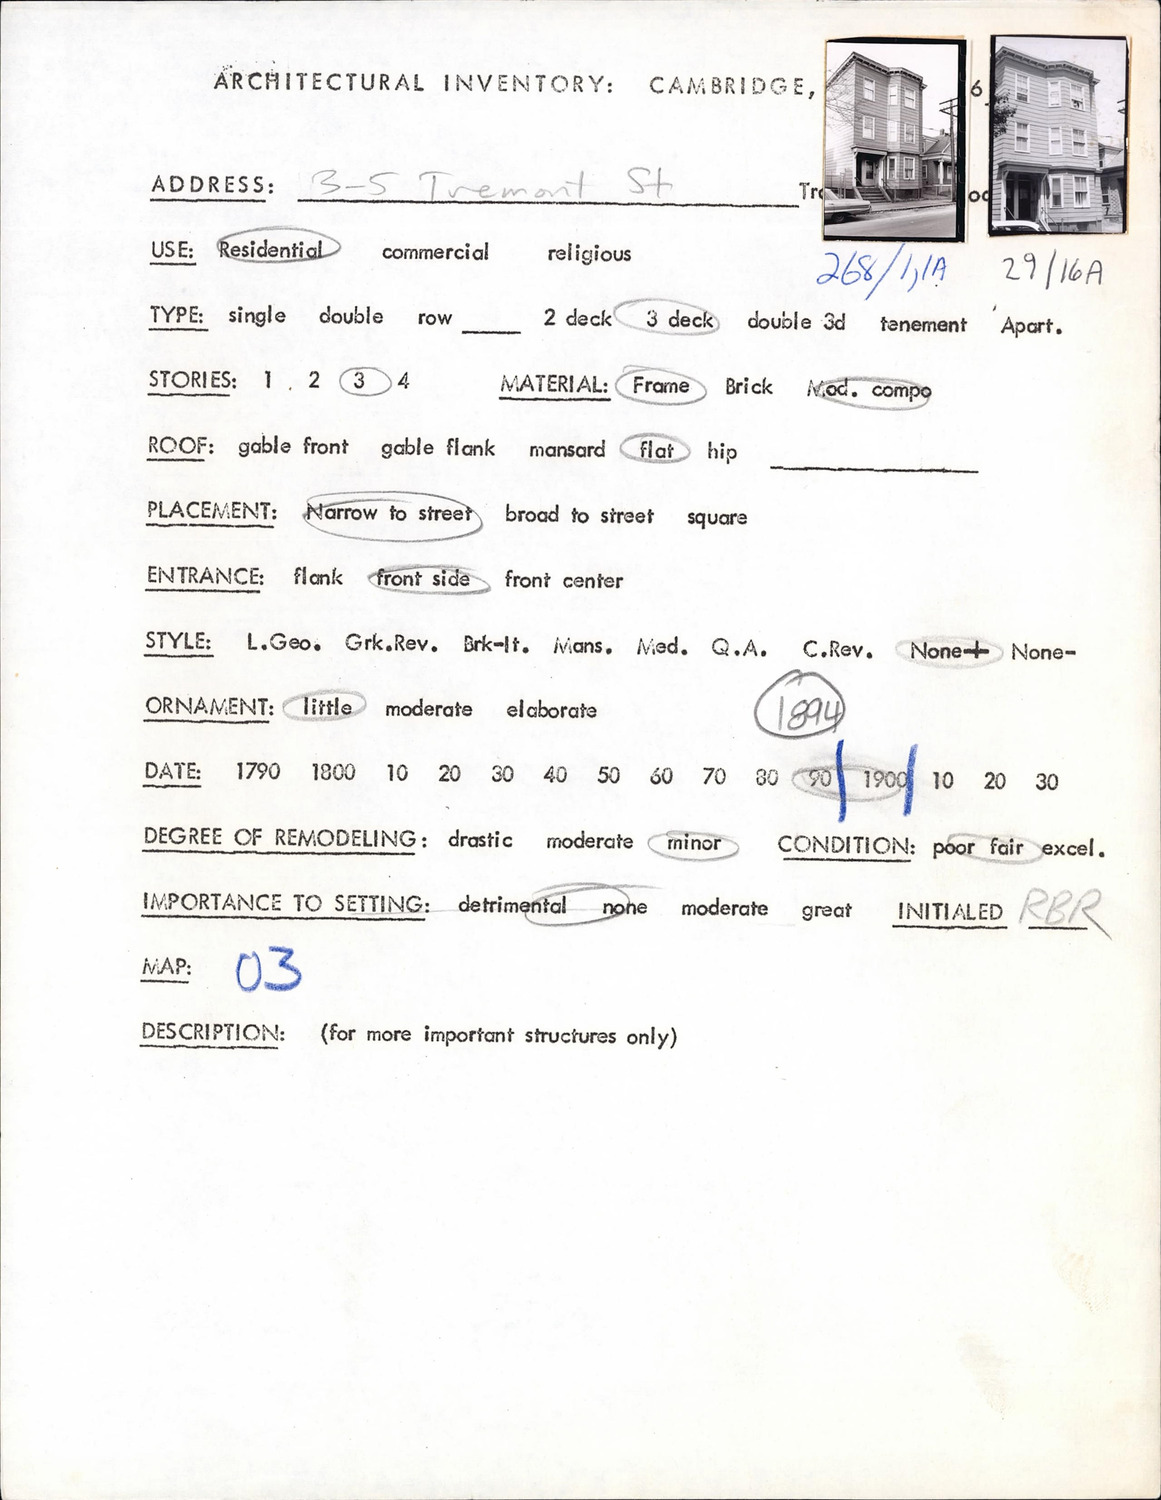 ARCHITECTURAL INVENTORY: CAMBRIDGE, 6
ADDRESS: 3-5 Tremont St
268/1,1A 29/16A
USE: Residential commercial religious
TYPE: single double row ____ 2 deck 3 deck double 3d tenement Apart.
STORIES: 1 . 2 3 4 MATERIAL: Frame Brick Mod. compo
ROOF: gable front gable flank mansard flat hip ____
PLACEMENT: Narrow to street broad to street square
ENTRANCE: flank front side front center
STYLE: L.Geo. Grk.Rev. Brk-It. Mans. Med. Q.A. C.Rev. None+ None-
ORNAMENT: little moderate elaborate 1894
DATE: 1790 1800 10 20 30 40 50 60 70 80 90 1900 10 20 30
DEGREE OF REMODELING: drastic moderate minor CONDITION: poor fair excel.
IMPORTANCE TO SETTING: detrimental none moderate great INITIALED RBR
MAP: 03
DESCRIPTION: (for more important structures only)